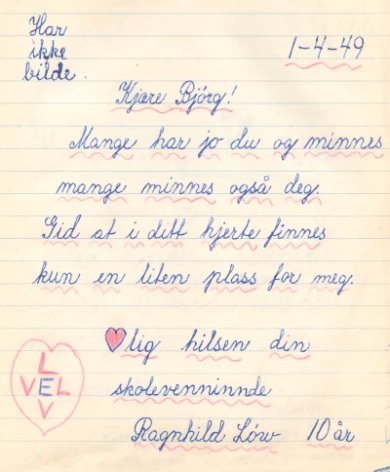 Har
ikke
bilde.
1-4-49
Kjære Bjørg!
Mange har jo du og minnes
mange minnes også deg.
Gid at i ditt hjerte finnes
kun en liten plass for meg.
♥lig hilsen din
skolevenninnde
Ragnhild Löw 10 år
L
VEL
V